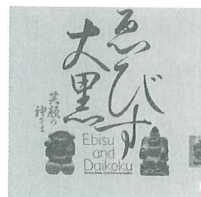 ゑびす
大黒
笑顔の
神さま
Ebisu
and
Daikoku